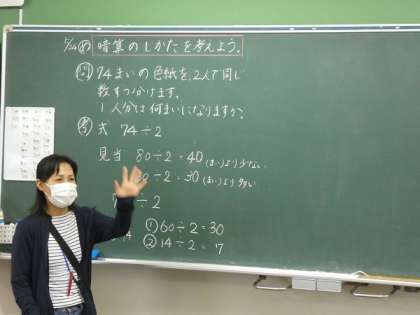 5/24 め 暗算のしかたを考えよう。
問 74まいの色紙を、2人で同じ
数ずつ分けます。
1人分は何まいになりますか。
考 式 74÷2
見当 80÷2=40 (まい)より少ない
÷2=30 (まい)より多い
÷2
① 60÷2=30
② 14÷2=7